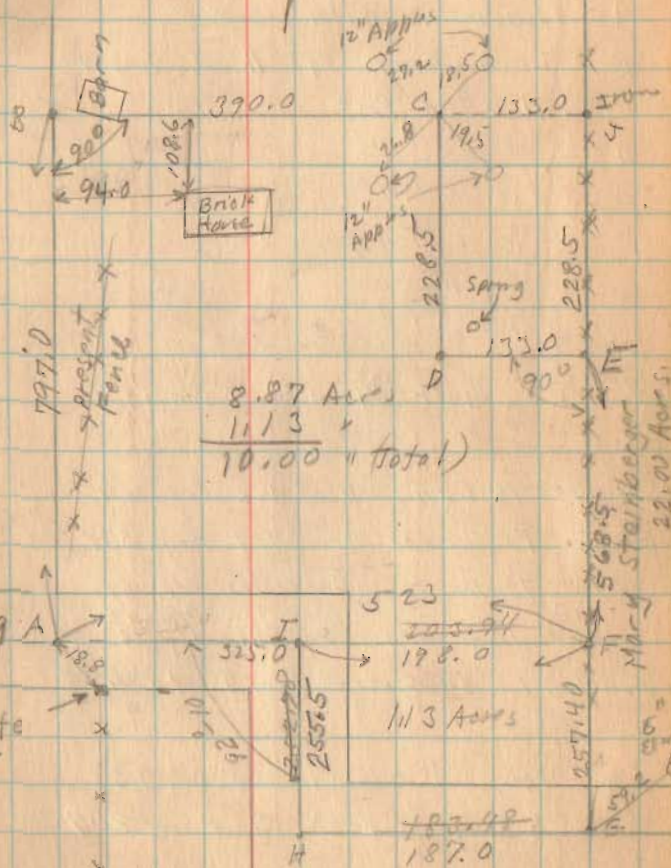 12" Apples
27.2
18.5
B
Barn
390.0
C
133.0
Iron
4
90°
108.6
26.8
19.5
94.0
Brick
House
12"
Apples
228.5
228.5
Spring
797.0
Present
Fence
133.0
D
90°
III
8.87 Acres
1.13 "
10.00 " total)
568.5
Mary Steinberger
22.00 Acres.
523
A
I
203.94
II
18.8
325.0
198.0
1.13 Acres
255.5
257.40
59.2
183.48
H
187.0